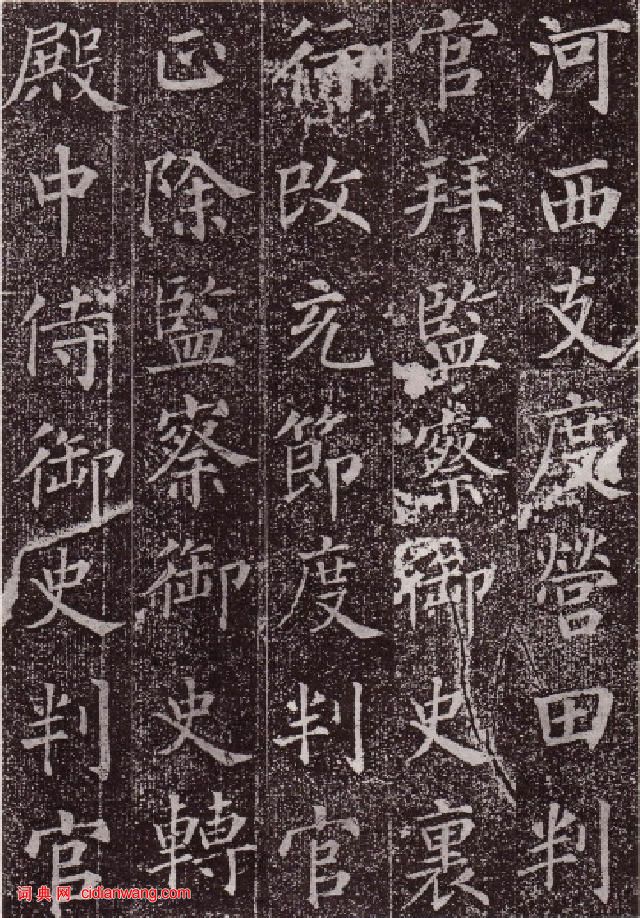 河西支度營田判
官拜監察御史裏
行改充節度判官
正除監察御史轉
殿中侍御史判官
词典网 cidianwang.com